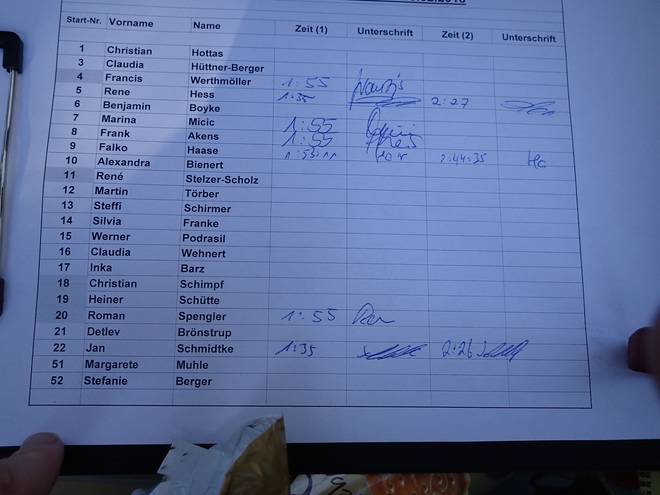 Start-Nr. Vorname Name Zeit (1) Unterschrift Zeit (2) Unterschrift
1 Christian Hottas
3 Claudia Hüttner-Berger
4 Francis Werthmöller 1:55
5 Rene Hess 1:35 2:27
6 Benjamin Boyke
7 Marina Micic 1:55
8 Frank Akens 1:55
9 Falko Haase 1:55:11 2:44:35 Ha
10 Alexandra Bienert
11 René Stelzer-Scholz
12 Martin Törber
13 Steffi Schirmer
14 Silvia Franke
15 Werner Podrasil
16 Claudia Wehnert
17 Inka Barz
18 Christian Schimpf
19 Heiner Schütte
20 Roman Spengler 1:55
21 Detlev Brönstrup
22 Jan Schmidtke 1:35 2:26
51 Margarete Muhle
52 Stefanie Berger